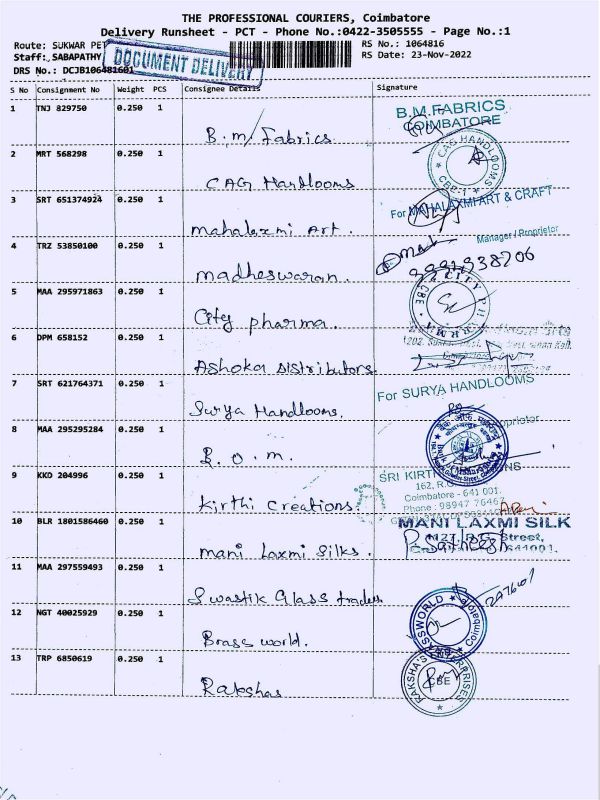 THE PROFESSIONAL COURIERS, Coimbatore
Delivery Runsheet - PCT - Phone No.:0422-3505555 - Page No.:1
Route: SUKWAR PET RS No.: 1064816
Staff: SABAPATHY RS Date: 23-Nov-2022
DOCUMENT DELIVERY
DRS No.: DCJB106481601
S No Consignment No Weight PCS Consignee Details Signature
1 TNJ 829750 0.250 1 B.m/Fabrics
B.M.FABRICS
COIMBATORE
2 MRT 568298 0.250 1 CAG Handlooms
CAG HANDLOOMS
CBE-1
3 SRT 651374924 0.250 1 mahalaxmi Art.
For MAHALAXMI ART & CRAFT
Manager / Proprietor
4 TRZ 53850100 0.250 1 madheswaran.
5 MAA 295971863 0.250 1 City pharma.
CITY PHARMA
CBE
6 DPM 658152 0.250 1 Ashoka Distributors
7 SRT 621764371 0.250 1 Surya Handlooms.
For SURYA HANDLOOMS
Proprietor
8 MAA 295295284 0.250 1 B.O.m.
9 KKD 204996 0.250 1 Kirthi Creations
SRI KIRTHI
162, R.G.
Coimbatore - 641 001.
Phone : 98947 76467
10 BLR 1801586460 0.250 1 mani Laxmi Silks.
MANI LAXMI SILK
Street,
641001.
11 MAA 297559493 0.250 1 Swastik Glass traders
12 NGT 40025929 0.250 1 Brass world.
BRASSWORLD
Coimbatore
13 TRP 6850619 0.250 1 Rakshas
RAKSHA'S ENTERPRISES
CBE